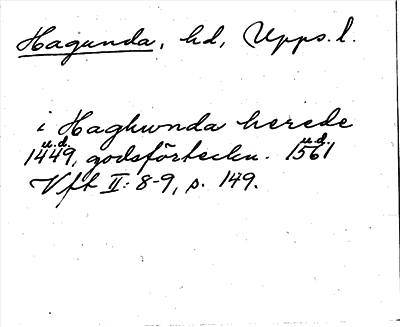 Hagunda, hd, Upps.l.
i Haghwnda herede
u.d. u.d.
1449, godsförteckn. 1561
Vft II: 8-9, s. 149.